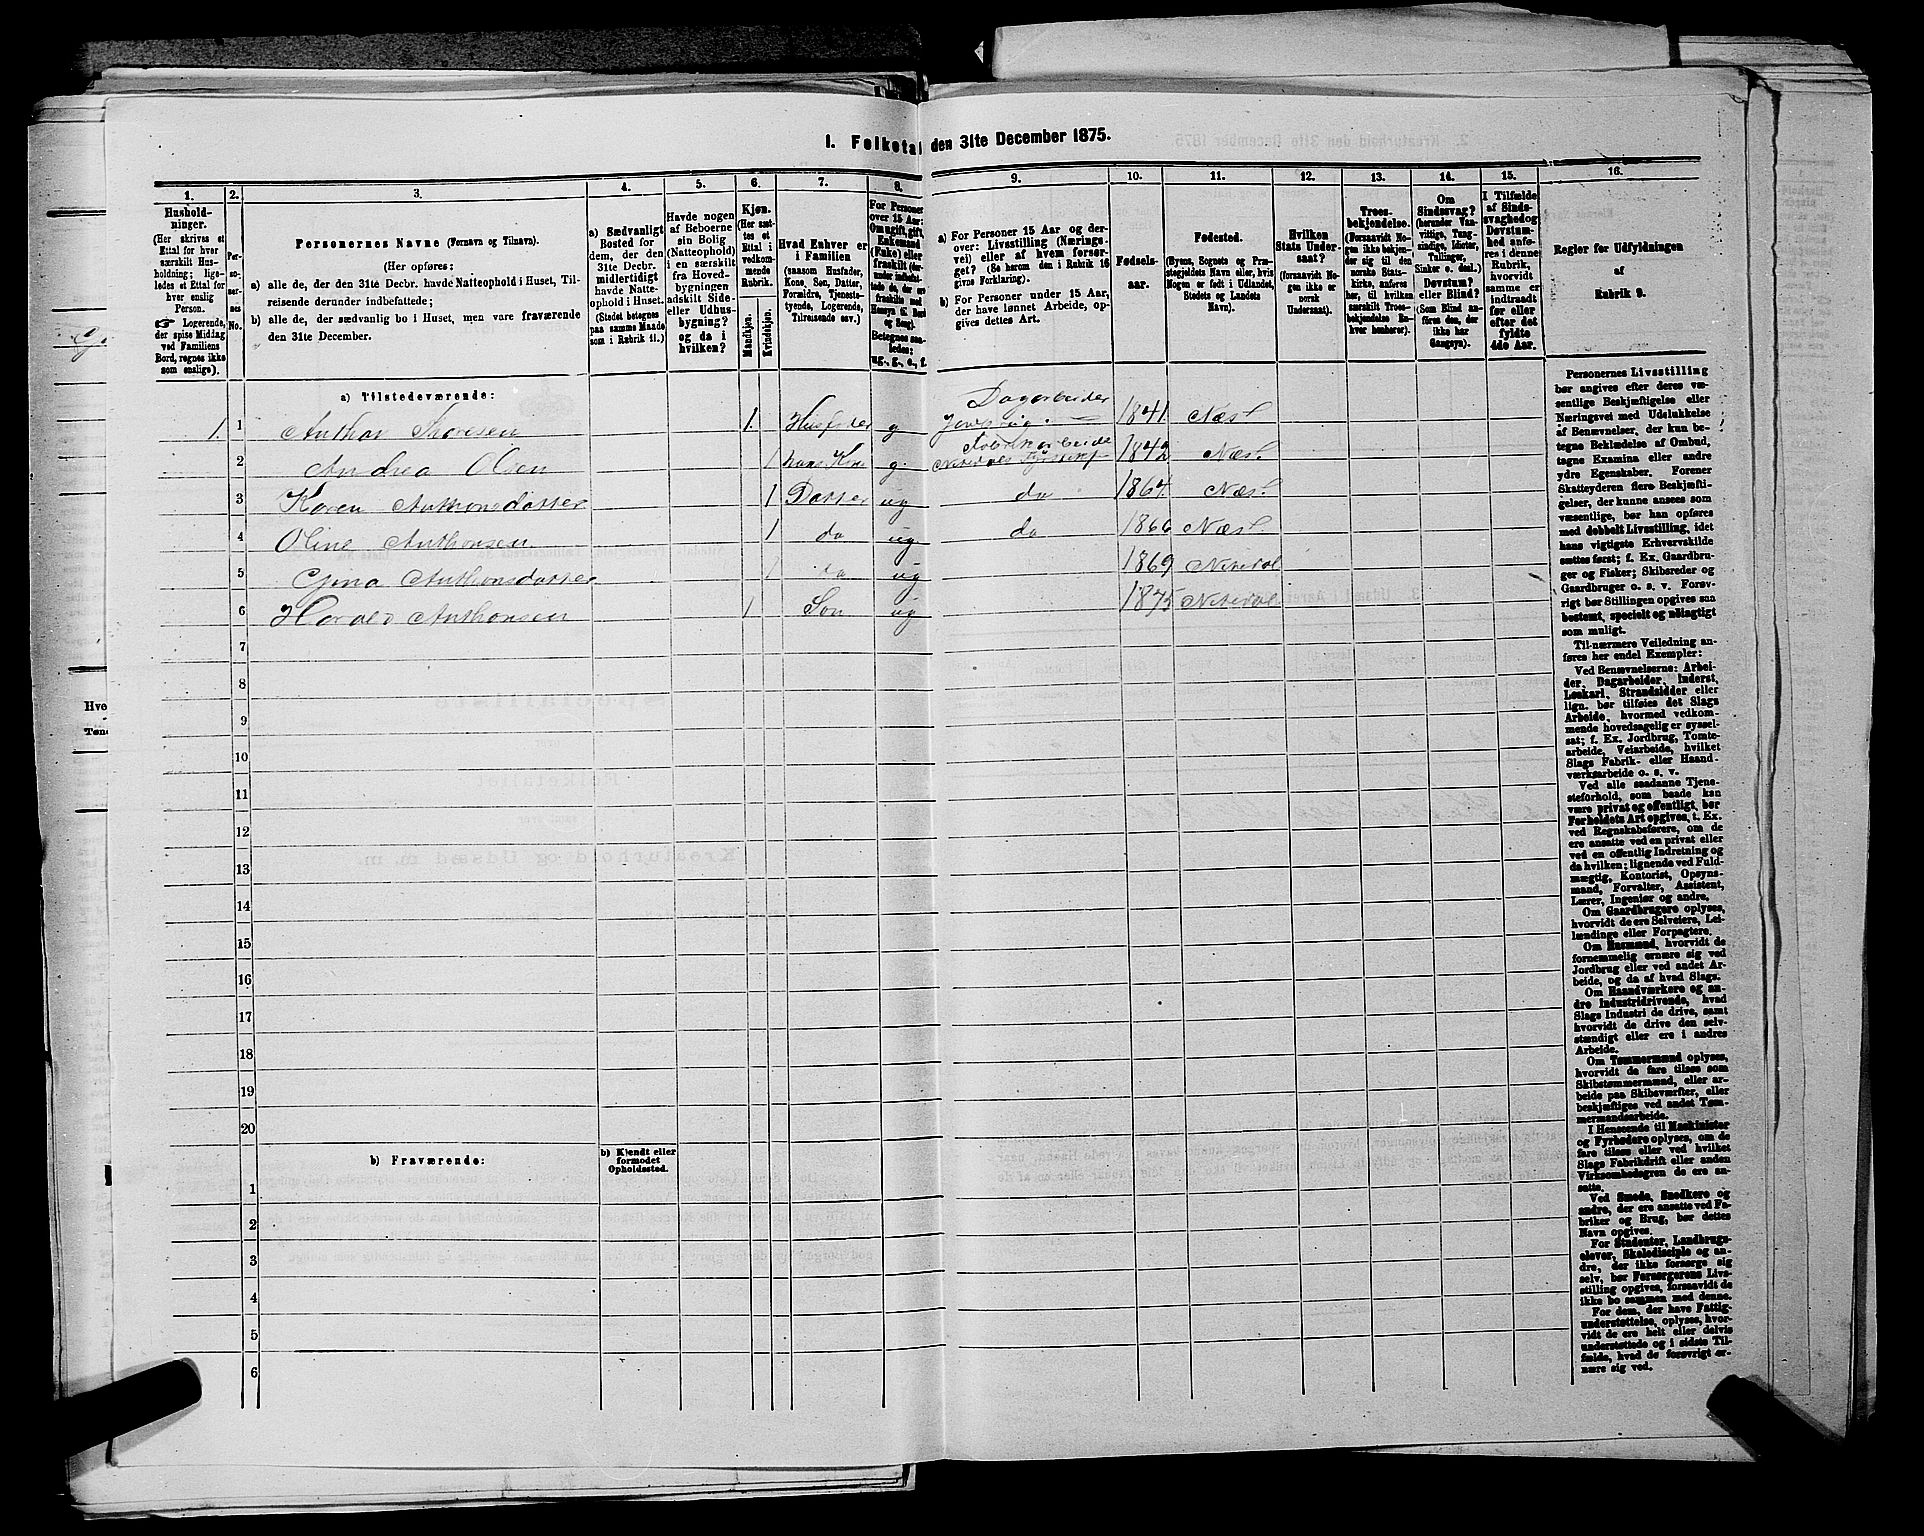 I. Folketal den 31te December 1875.
1. 2. 3. 4. 5. 6. 7. 8. 9. 10. 11. 12. 13. 14. 15. 16.
Hushold-
ninger.
(Her skrives et
Ettal for hver
særskilt Hus-
holdning; lige-
ledes et Ettal for
hver enslig
Person.
☞ Logerende,
der spise Middag
ved Familiens
Bord, regnes ikke
som enslige).
Per-
so-
ner-
nes
No.
Personernes Navne (Fornavn og Tilnavn).
(Her opføres:
a) alle de, der den 31te Decbr. havde Natteophold i Huset, Til-
reisende derunder indbefattede;
b) alle de, der sædvanlig bo i Huset, men vare fraværende
den 31te December.
a) Sædvanligt
Bosted for
dem, der den
31te Decbr.
midlertidigt
havde Natte-
ophold i Huset.
(Stedet betegnes
paa samme Maade
som i Rubrik 11.)
Havde nogen
af Beboerne
sin Bolig
(Natteophold)
i en særskilt
fra Hoved-
bygningen
adskilt Side-
eller Udhus-
bygning?
og da i
hvilken?
Kjøn.
(Her sæt-
tes et
Ettal i
vedkom-
mende
Rubrik.
Mandkjøn.
Kvindekjøn.
Hvad Enhver er
i Familien
(saasom Husfader,
Kone, Søn, Datter,
Forældre, Tjeneste-
tyende, Logerende,
Tilreisende osv.)
For Personer
over 15 Aar:
Om ugift, gift,
Enkemand
(Enke) eller
fraskilt
Betegnes saa-
ledes:
ug., g., e., f.
a) For Personer 15 Aar og der-
over: Livsstilling (Nærings-
vei) eller af hvem forsør-
get? (Se herom den i Rubrik 16
givne Forklaring).
b) For Personer under 15 Aar,
der have lønnet Arbeide, op-
gives dettes Art.
Fødsels-
aar.
Fødested.
(Byens, Sognets og Præ-
stegjeldets Navn eller, hvis
Nogen er født i Udlandet,
Stedets og Landets
Navn).
Hvilken
Stats Under-
saat?
(forsaavidt No-
gen ikke er
norsk
Undersaat).
Troes-
bekjendelse.
(Forsaavidt No-
gen ikke bekjen-
der sig til den
norske Stats-
kirke, anføres
her, til hvilken
særskilt Troes-
bekjendelse En-
hver henhører).
Om
Sindssvag?
(herunder Van-
vittige, Tung-
sindige, Idioter,
Tullinger,
Sinker o. desl.)
Døvstum?
eller Blind?
(Som Blind an-
føres den, der
ikke har
Gangsyn).
I Tilfælde
af Sinds-
svaghed og
Døvstum-
hed anfø-
res i denne
Rubrik,
hvorvidt
samme er
indtraadt
før eller
efter det
fyldte
4de Aar.
Regler for Udfyldningen
af
Rubrik 9.
a) Tilstedeværende:
Dagarbeider
1. 1 Anthon Thoresen 1. Husfader g Jordbrug 1841. Næs
2 Andrea Olsen 1 hans Kone g. 1842 Næs
3 Karen Anthonsdatter 1 Datter ug do 1864. Næs
4 Oline Anthonsen 1 do ug do 1866 Næs
5 Gina Anthonsdatter 1 do ug 1869 Nitedal
6 Harald Anthonsen 1 Søn ug 1875 Nitedal
7
8
9
10
11
12
13
14
15
16
17
18
19
20
b) Fraværende:
b) Kjendt eller
formodet
Opholdssted.
1
2
3
4
5
6
Personernes Livsstilling
bør angives efter deres væ-
sentlige Beskjæftigelse eller
Næringsvei med Udelukkelse
af Benævnelser, der kun be-
tegne Beklædelse af Ombud,
tagne Examina eller andre
ydre Egenskaber. Forener
Skatteyderen flere Beskjæfti-
gelser, der kunne ansees som
væsentlige, bør han opføres
med dobbelt Livsstilling, idet
hans vigtigste Erhvervskilde
sættes først; f. Ex. Gaardbru-
ger og Fisker; Skibsreder og
Gaardbruger o. s. v. Forøv-
rigt bør Stillingen opgives saa
bestemt, specielt og nøiagtigt
som muligt.
Til nærmere Veiledning an-
føres her endel Exempler:
Ved Benævnelserne: Arbei-
der, Dagarbeider, Inderst,
Løskarl, Strandsidder eller
lign. bør tilføies det Slags
Arbeide, hvormed vedkom-
mende hovedsagelig er syssel-
sat; f. Ex. Jordbrug, Tomte-
arbeide, Veiarbeide, hvilket
Slags Fabrik- eller Haand-
værksarbeide o. s. v.
Ved alle saadanne Tjene-
steforhold, som baade kan
være privat og offentligt, bør
Forholdets Art opgives, t. Ex.
ved Regnskabsførere, om de
ere ansatte ved en privat eller
ved en offentlig Indretning og
da hvilken; lignende ved Fuld-
mægtig, Kontorist, Opsyns-
mand, Forvalter, Assistent,
Lærer, Ingeniør og andre.
Om Gaardbrugere oplyses,
hvorvidt de ere Selveiere, Lei-
lændinge eller Forpagtere.
Om Husmænd, hvorvidt de
fornemmelig ernære sig ved
Jordbrug eller ved andet Ar-
beide, og da af hvad Slags.
Om Haandværkere og an-
dre Industridrivende, hvad
Slags Industri de drive, samt
hvorvidt de drive den selv-
stændigt eller ere i andres
Arbeide.
Om Tømmermænd oplyses,
hvorvidt de fare tilsøs som
Skibstømmermænd, eller ar-
beide paa Skibsværfter, eller
beskjæftiges ved andet Tøm-
mermandsarbeide.
I Henseende til Maskinister
og Fyrbødere oplyses, om de
fare tilsøs eller ved hvilket
Slags Fabrikdrift eller anden
Virksomhedsgren de ere an-
satte.
Ved Smede, Snedkere og
andre, der ere ansatte ved Fa-
briker og Brug, bør dettes
Navn opgives.
For Studenter, Landbrugs-
elever, Skoledisciple og an-
dre, der ikke forsørge sig
selv, bør Forsørgerens Livs-
stilling opgives, forsaavidt de
ikke bo sammen med denne.
For dem, der have Fattig-
understøttelse, oplyses, hvor-
vidt de ere helt eller delvis
understøttede og i sidste Til-
fælde, hvad de forøvrigt er-
nære sig ved.